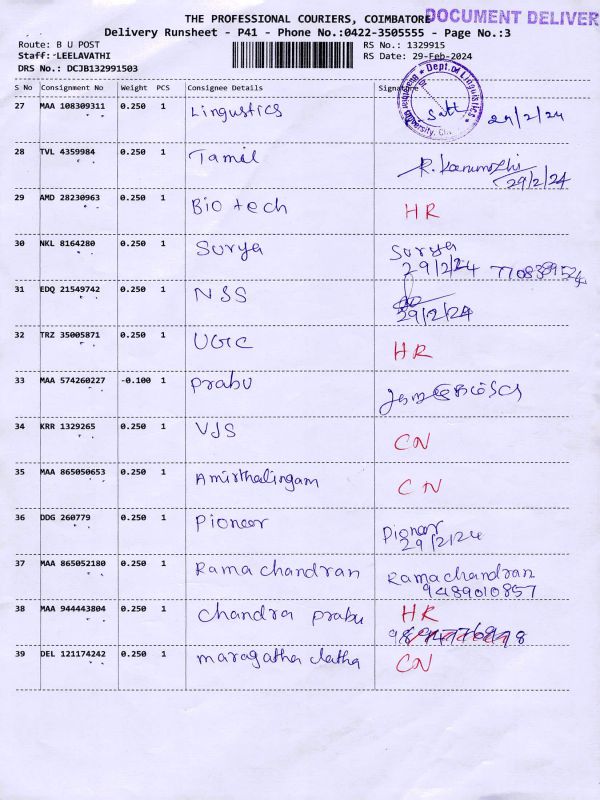 THE PROFESSIONAL COURIERS, COIMBATORE
DOCUMENT DELIVER
Delivery Runsheet - P41 - Phone No.:0422-3505555 - Page No.:3
Route: B U POST
RS No.: 1329915
Staff: LEELAVATHI
RS Date: 29-Feb-2024
DRS No.: DCJB132991503
S No Consignment No Weight PCS Consignee Details Signature
Dept. of Linguistics
27 MAA 108309311 0.250 1 Lingustics 29/2/24
28 TVL 4359984 0.250 1 Tamil
29/2/24
29 AMD 28230963 0.250 1 Bio tech HR
30 NKL 8164280 0.250 1 Surya Surya
29/2/24
31 EDQ 21549742 0.250 1 NSS
29/2/24
32 TRZ 35005871 0.250 1 UGC HR
33 MAA 574260227 -0.100 1 prabu
34 KRR 1329265 0.250 1 VJS CN
35 MAA 865050653 0.250 1 Amirthalingam CN
36 DDG 260779 0.250 1 Pioneer Pioneer
29/2/24
37 MAA 865052180 0.250 1 Rama chandran Ramachandran
9489010857
38 MAA 944443804 0.250 1 chandra prabu HR
39 DEL 121174242 0.250 1 maragatha latha CN